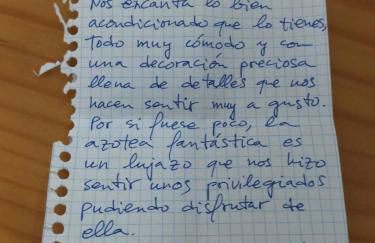 Nos encanta lo bien
acondicionado que lo tienes,
Todo muy cómodo y con
una decoración preciosa
llena de detalles que nos
hacen sentir muy a gusto.
Por si fuese poco, la
azotea fantástica es
un lujazo que nos hizo
sentir unos privilegiados
pudiendo disfrutar de
ella.